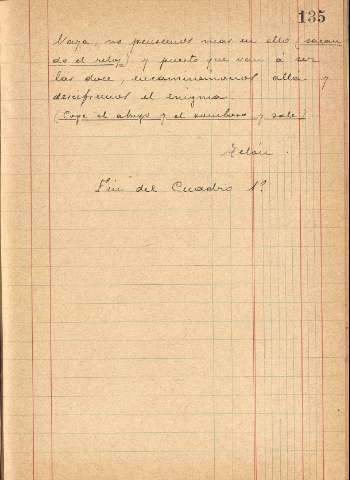 135
Vaya, no pensemos mas en ello (sacan
do el reloj) y puesto que van á ser
las doce, encaminemonos alla y
descifremos el enigma.
(Coge el abrigo y el sombrero y sale)
Telón.
Fin del Cuadro 1º